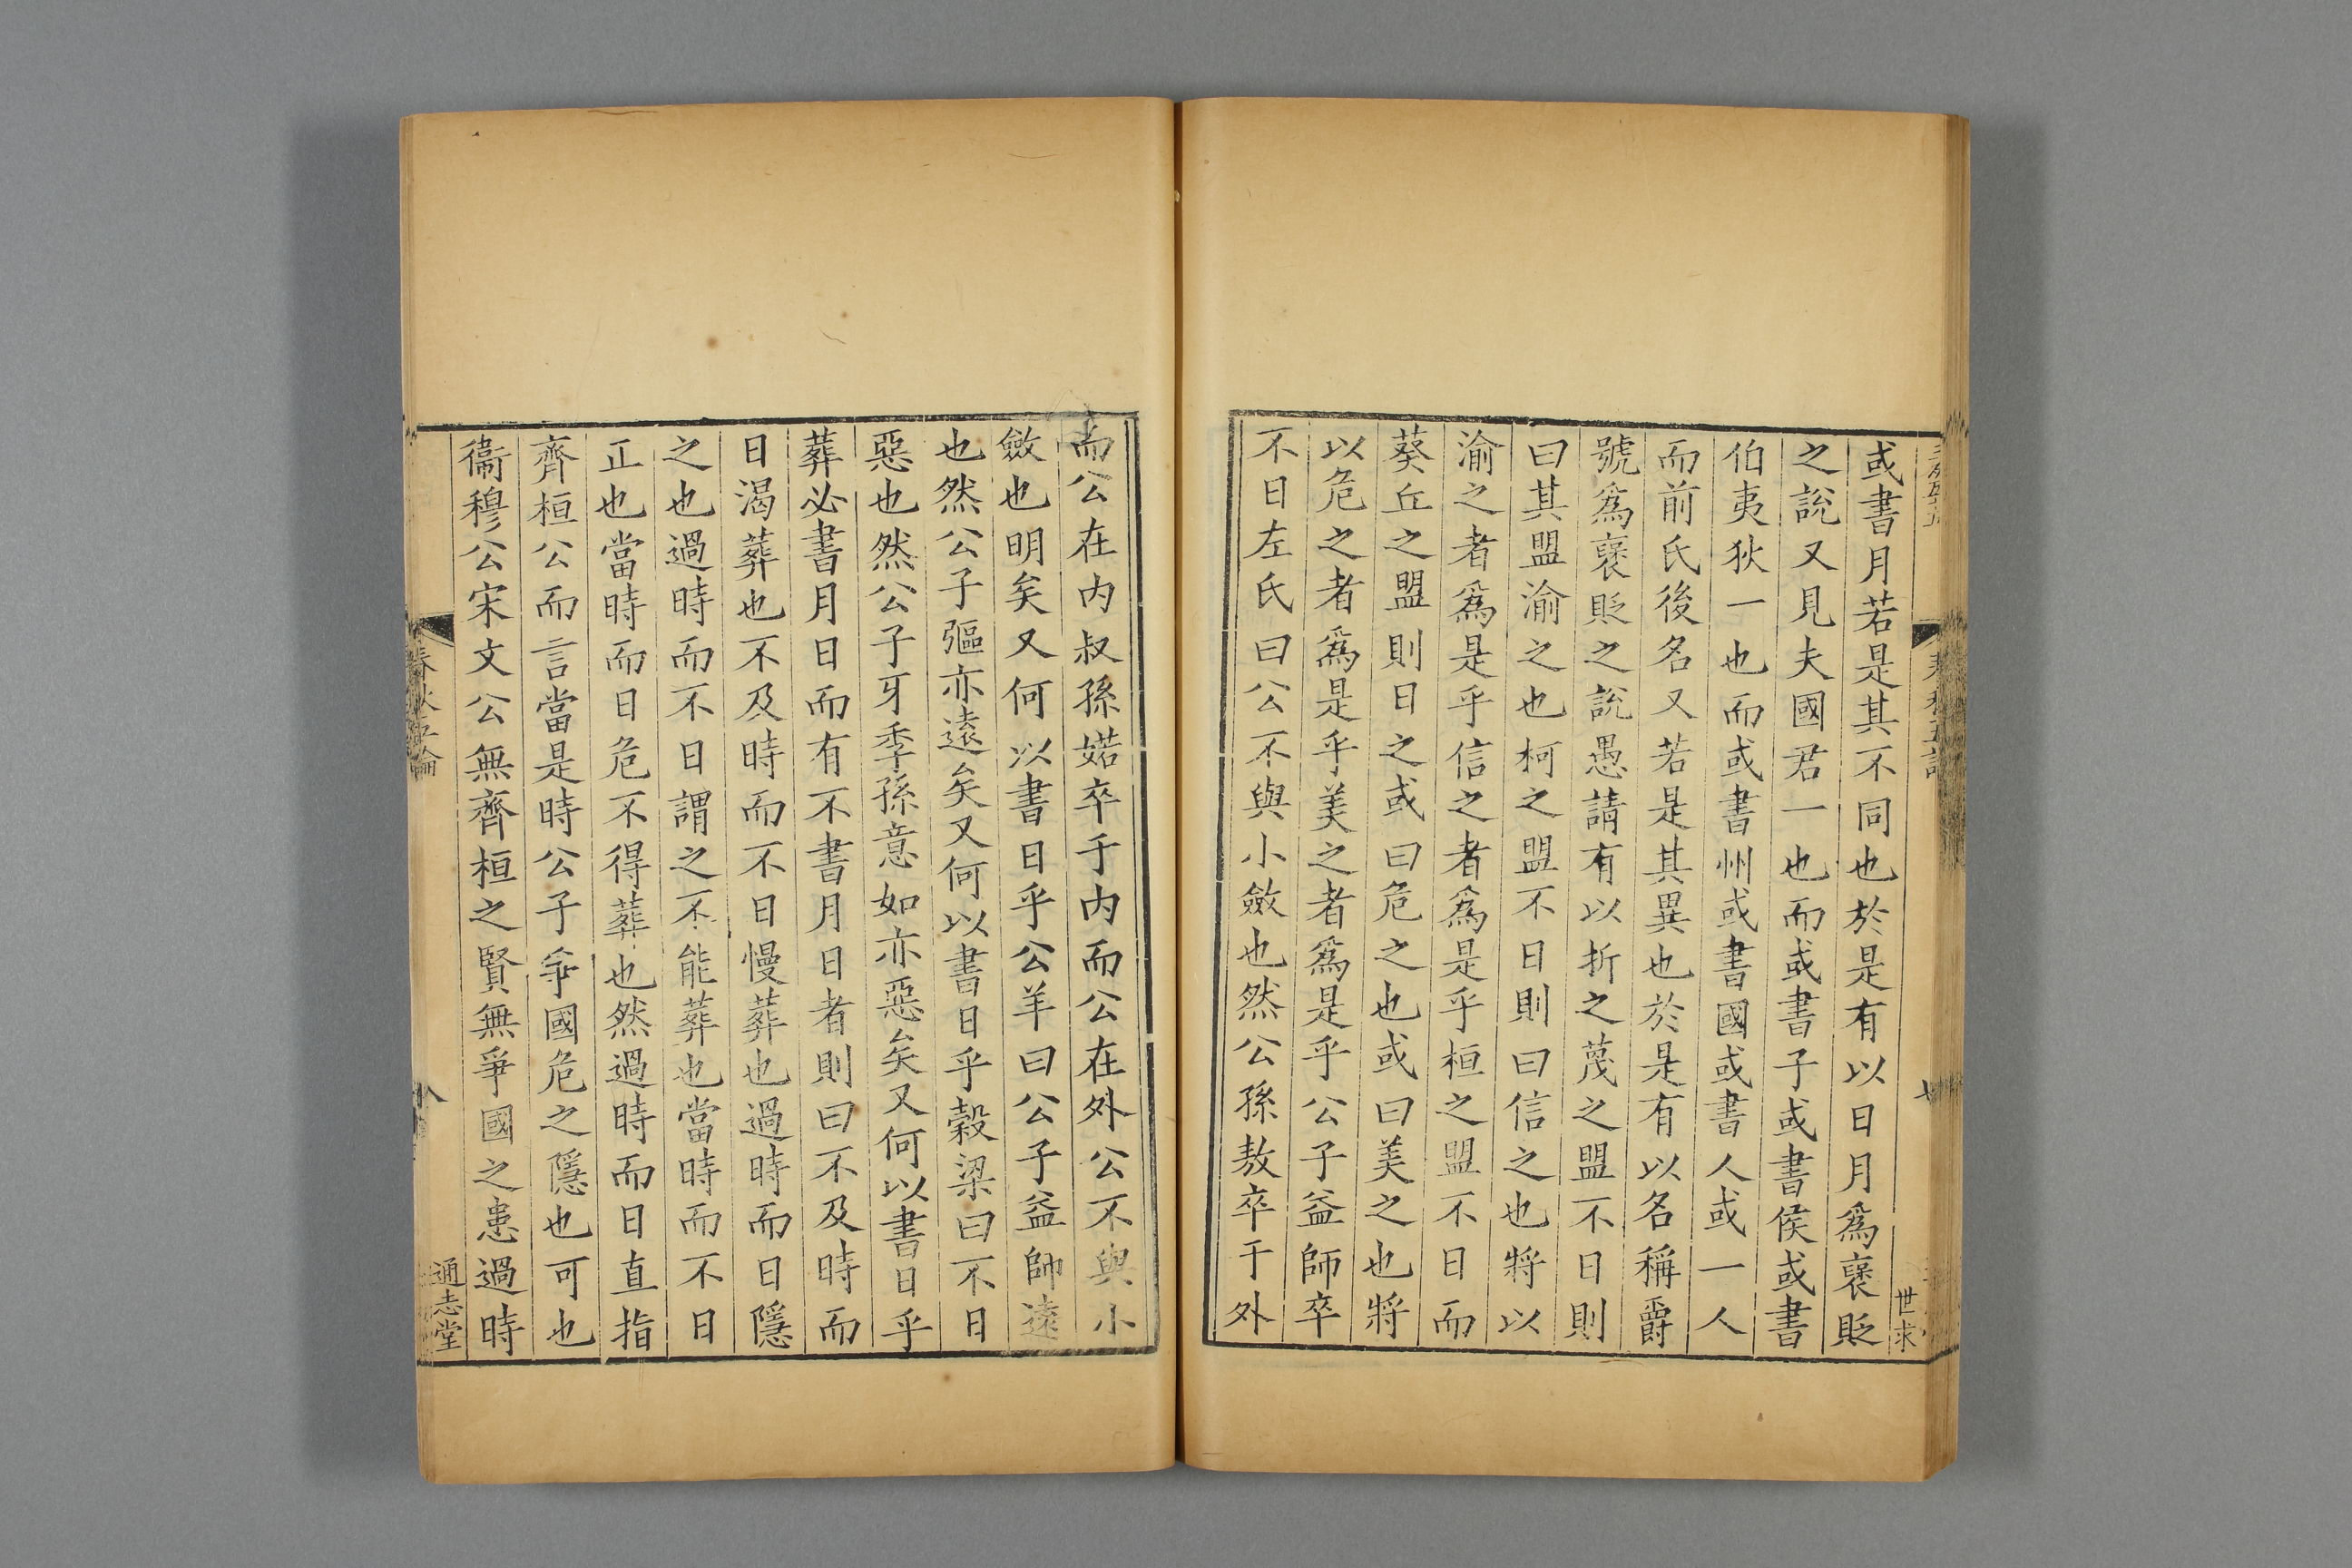 或書月若是其不同也於是有以日月爲襃貶
之說又見夫國君一也而或書子或書侯或書
伯夷狄一也而或書州或書國或書人或一人
而前氏後名又若是其異也於是有以名稱爵
號爲襃貶之說愚請有以折之蔑之盟不日則
曰其盟渝之也柯之盟不日則曰信之也將以
渝之者爲是乎信之者爲是乎桓之盟不日而
葵丘之盟則日之或曰危之也或曰美之也將
以危之者爲是乎美之者爲是乎公子益師卒
不日左氏曰公不與小斂也然公孫敖卒于外
而公在内叔孫婼卒于内而公在外公不與小
斂也明矣又何以書日乎公羊曰公子益師遠
也然公子彄亦遠矣又何以書日乎穀梁曰不日
惡也然公子牙季孫意如亦惡矣又何以書日乎
葬必書月日而有不書月日者則曰不及時而
日渴葬也不及時而不日慢葬也過時而日隱
之也過時而不日謂之不能葬也當時而不日
正也當時而日危不得葬也然過時而日直指
齊桓公而言當是時公子爭國危之隱也可也
衞穆公宋文公無齊桓之賢無爭國之患過時
春秋五論
八
通志堂
世求